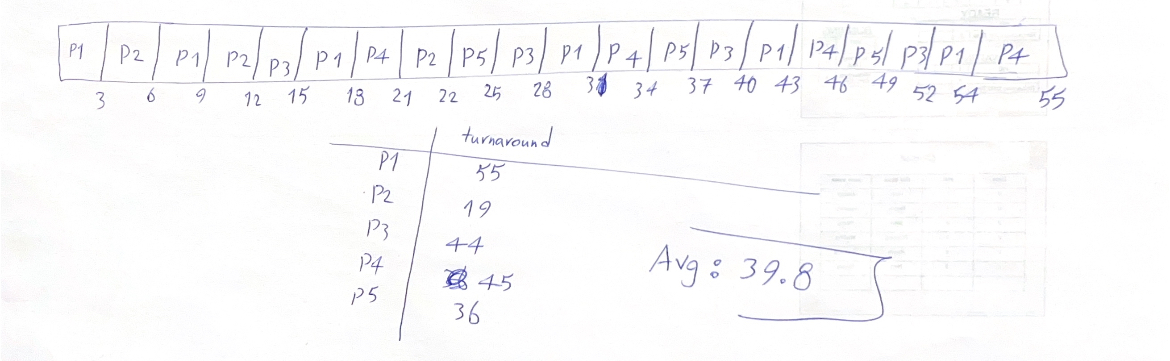 P1 P2 P1 P2 P3 P1 P4 P2 P5 P3 P1 P4 P5 P3 P1 P4 P5 P3 P1 P4
3 6 9 12 15 18 21 22 25 28 31 34 37 40 43 46 49 52 54 55
turnaround
P1 55
P2 19
P3 44
P4 45
P5 36
Avg: 39.8